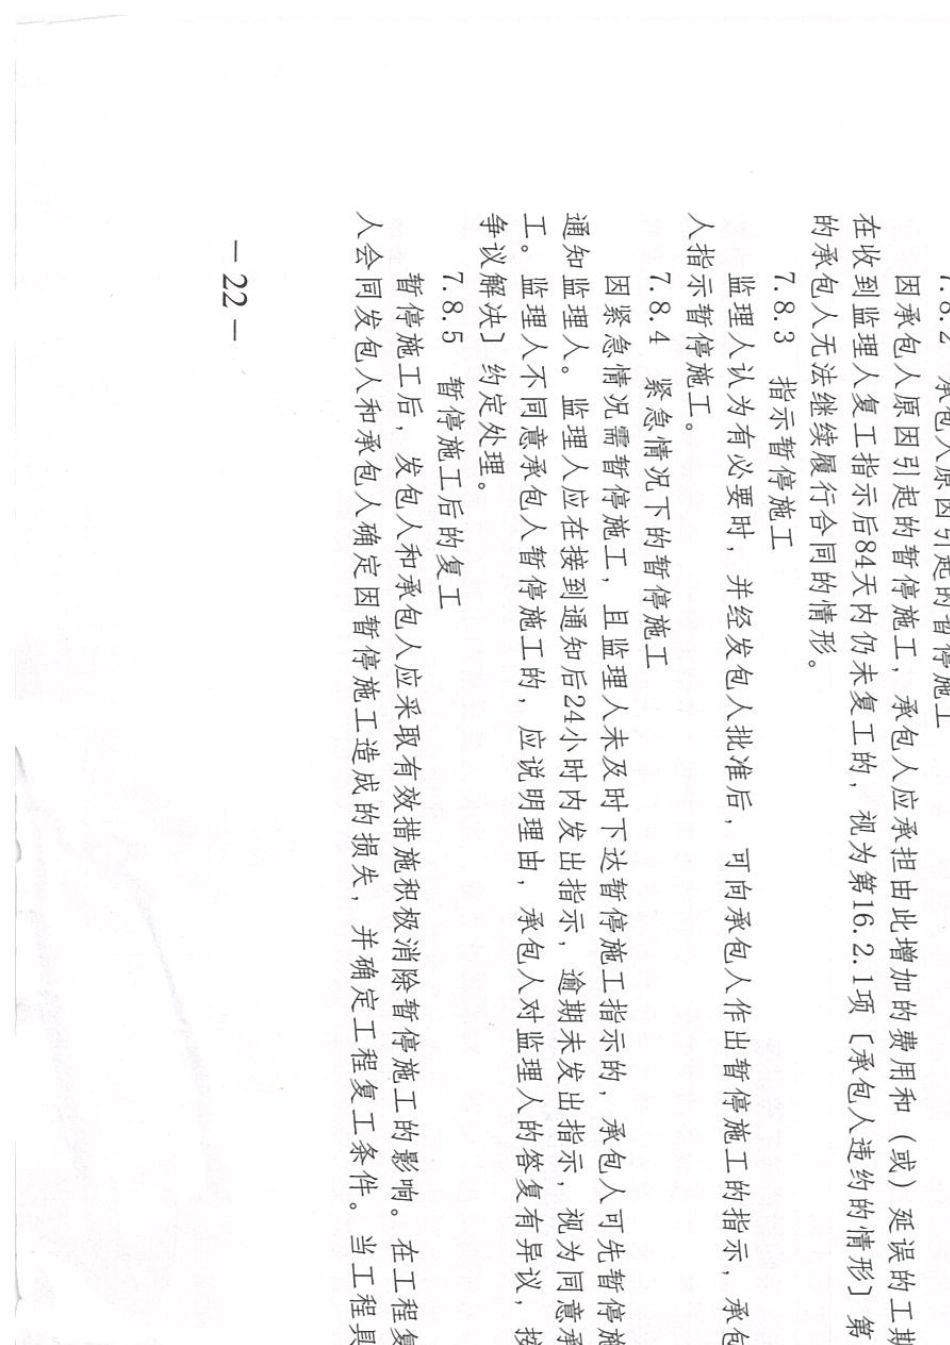 7.8.2 承包人原因引起的暂停施工
因承包人原因引起的暂停施工，承包人应承担由此增加的费用和（或）延误的工期
在收到监理人复工指示后84天内仍未复工的，视为第16.2.1项〔承包人违约的情形〕第
的承包人无法继续履行合同的情形。
7.8.3 指示暂停施工
监理人认为有必要时，并经发包人批准后，可向承包人作出暂停施工的指示，承包
人指示暂停施工。
7.8.4 紧急情况下的暂停施工
因紧急情况需暂停施工，且监理人未及时下达暂停施工指示的，承包人可先暂停施
通知监理人。监理人应在接到通知后24小时内发出指示，逾期未发出指示，视为同意承
工。监理人不同意承包人暂停施工的，应说明理由，承包人对监理人的答复有异议，按
争议解决〕约定处理。
7.8.5 暂停施工后的复工
暂停施工后，发包人和承包人应采取有效措施积极消除暂停施工的影响。在工程复
人会同发包人和承包人确定因暂停施工造成的损失，并确定工程复工条件。当工程具
－22－